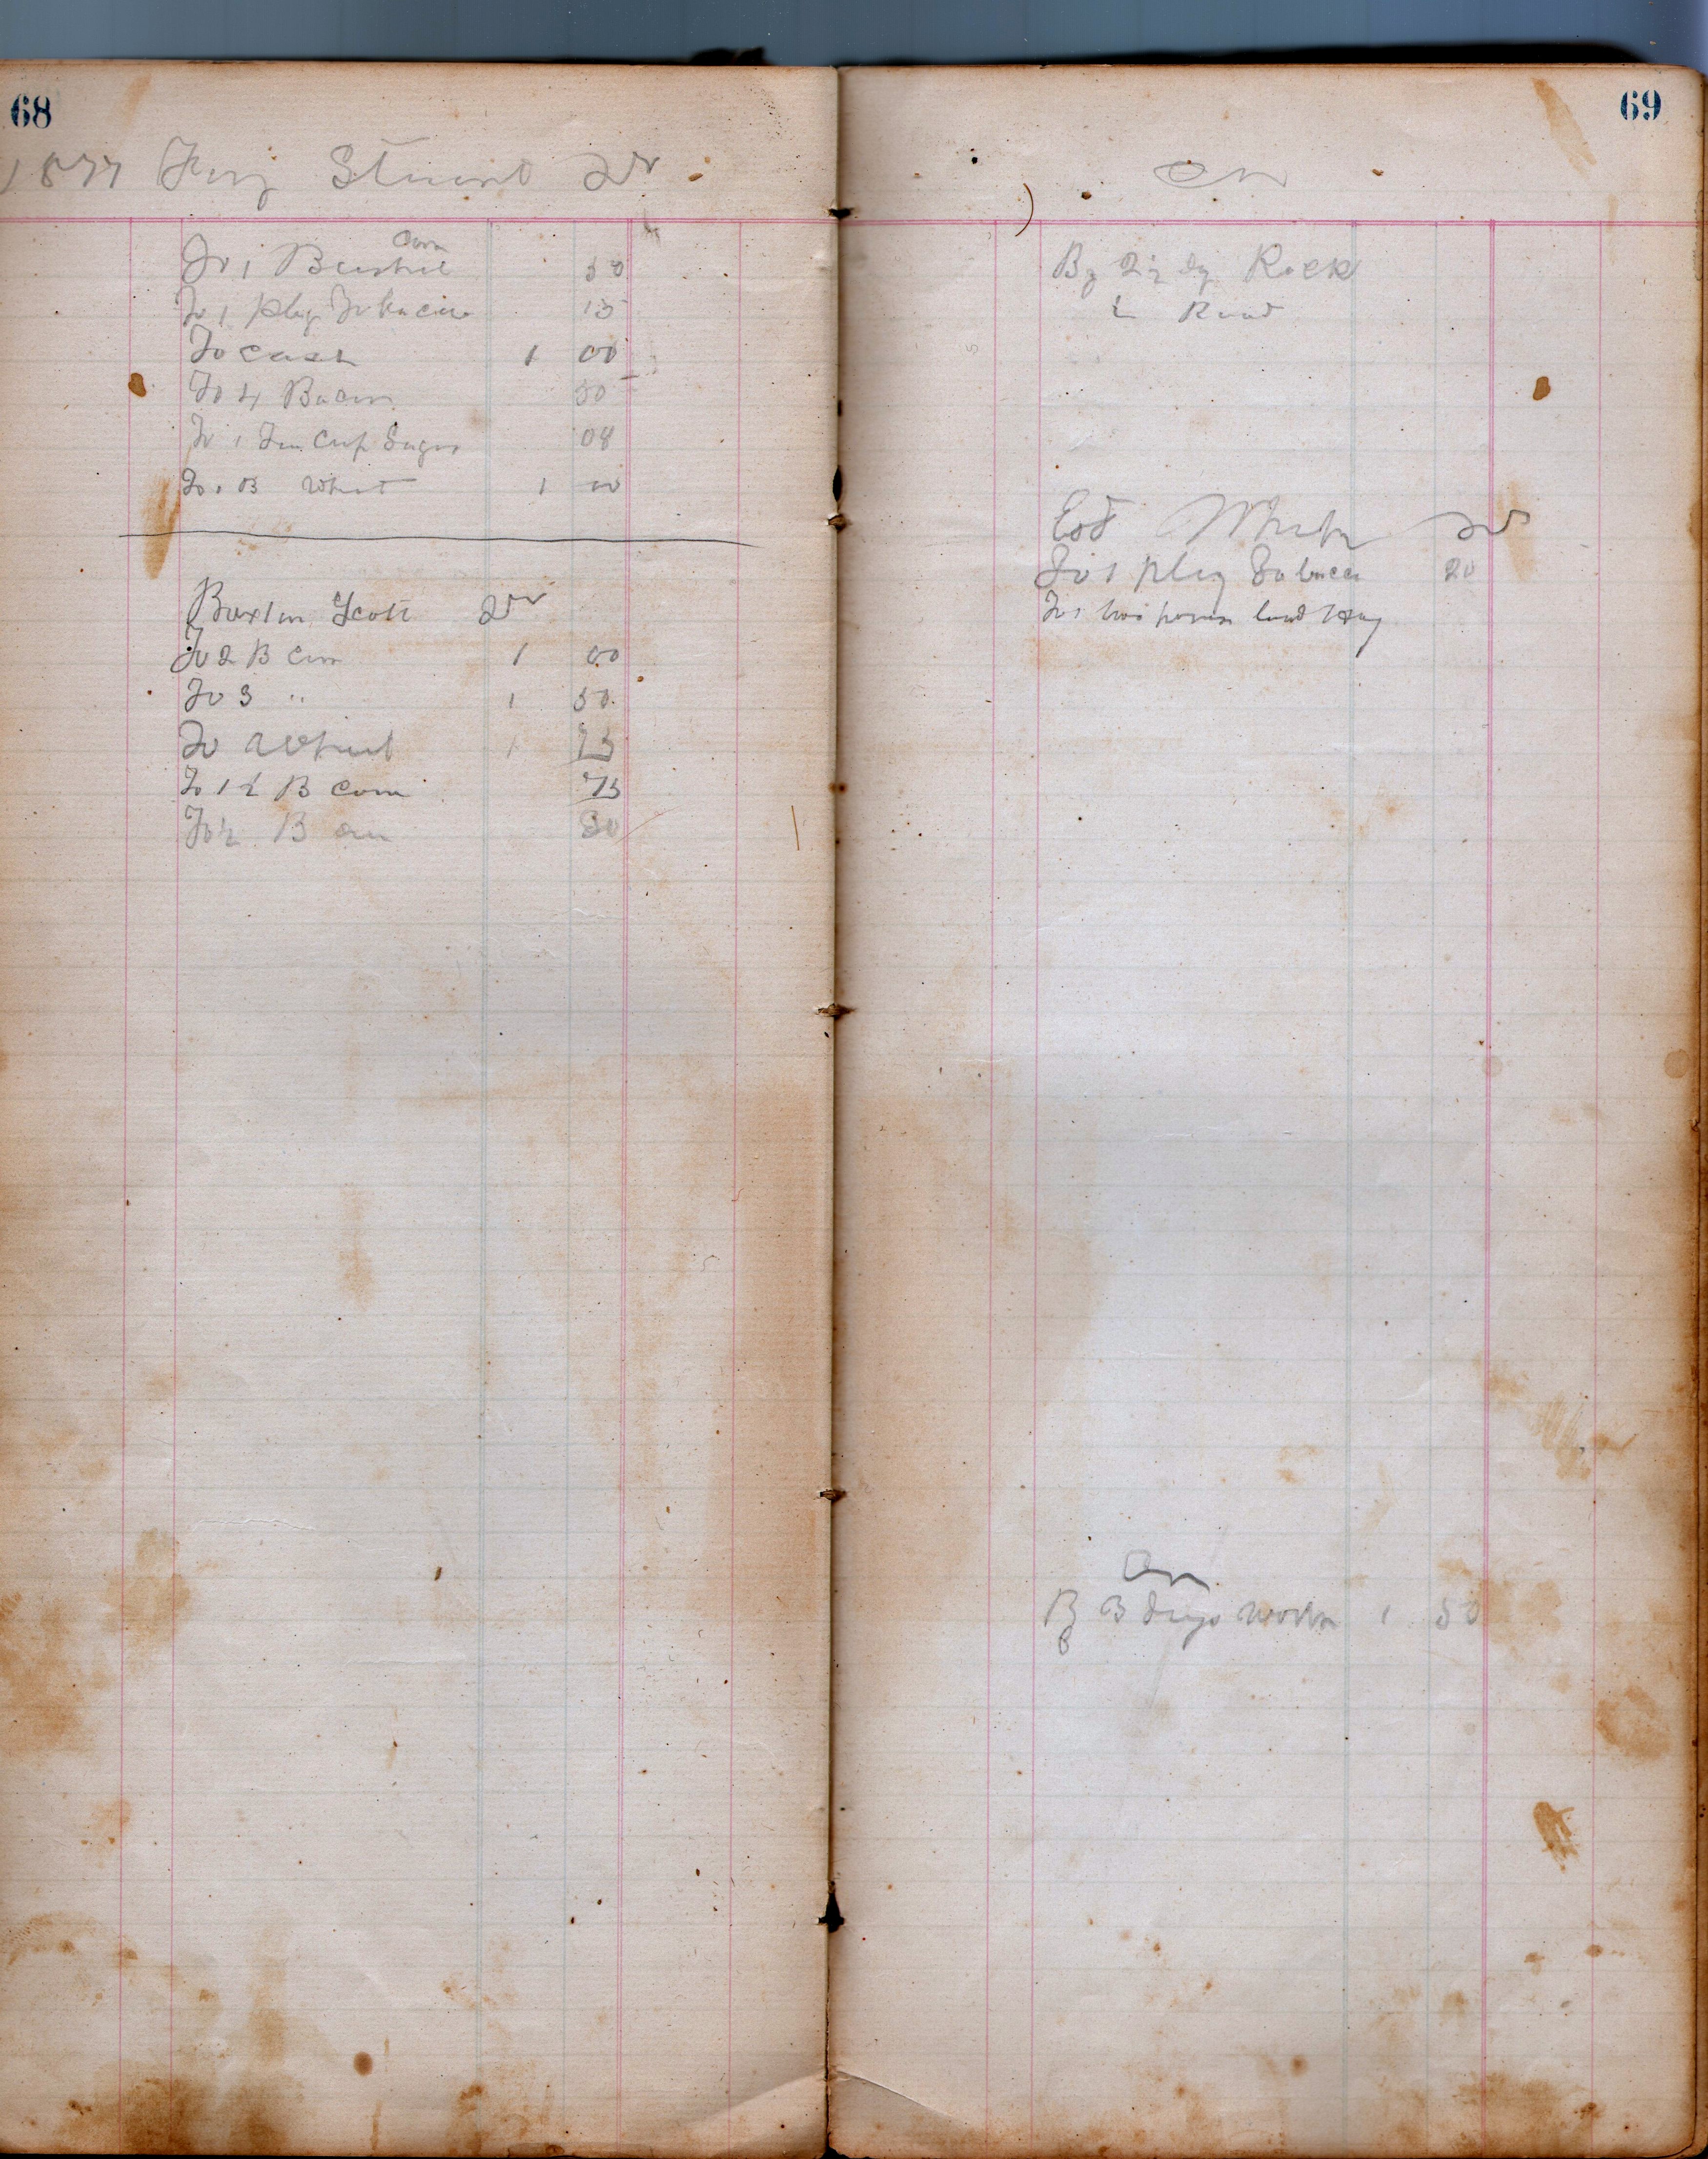 68
1877 Stuart Dr
Corn
To 1 Bushel 50
To 1 plug Tobacco 15
To cash 1 00
To 4 Bacon 50
To 1 Tin Cup Sugar 08
To 1 B Wheat 1 00
Baxter Scott Dr
To 2 B Corn 1 00
To 3 " 1 50
To Wheat 1 25
To 1 ½ B Corn 75
To B 50
69
Cr
By 2½ dy Rock
Road
Ed Dr
To 1 plug Tobacco 20
To 1 two horse load Hay
Cr
By 3 days work 1 50